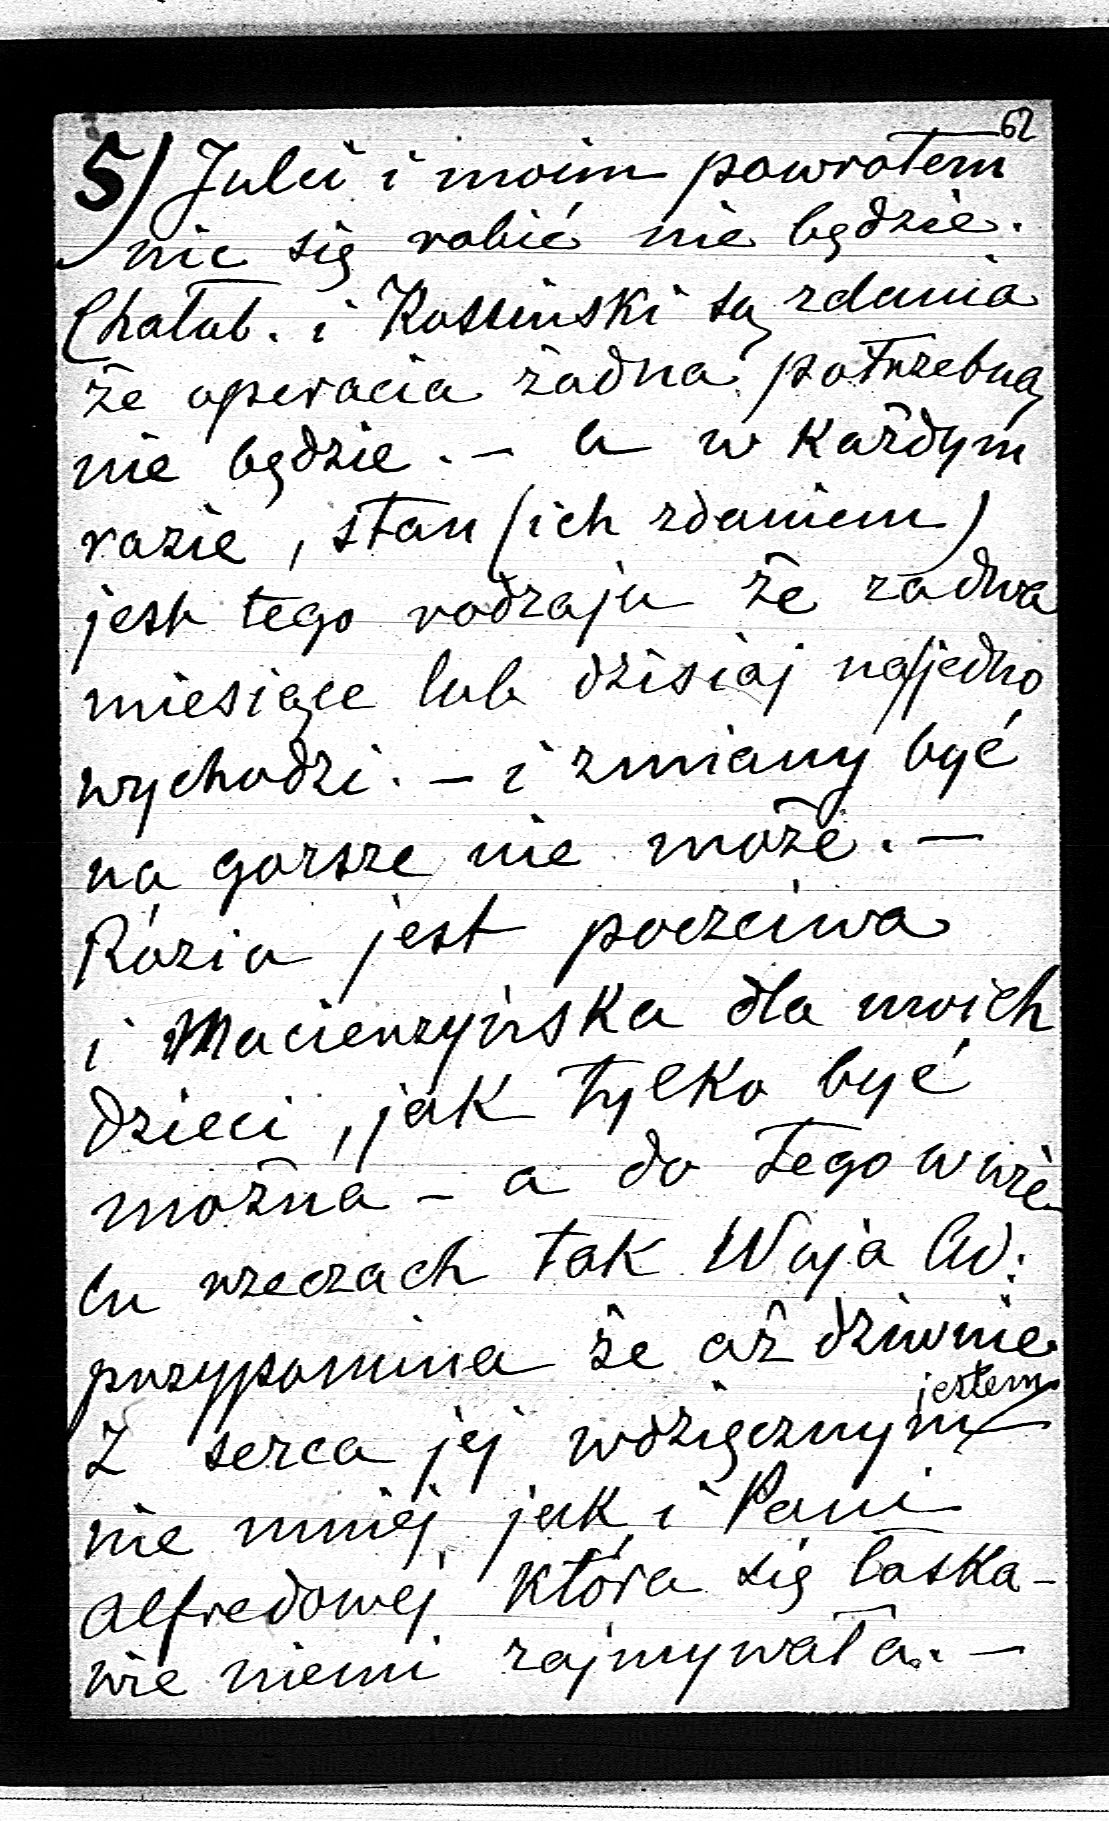 62
5) Julci i moim powrotem
nic się robić nie będzie.
Chałub. i Kossinski są zdania
że operacia żadna potrzebną
nie będzie. – a w każdym
razie, stan (ich zdaniem)
jest tego rodzaju że za dwa
miesiące lub dzisiaj na jedno
wychodzi. – i zmiany być
na gorsze nie może. –
Rózia jest poczciwa
i Macierzyńska dla moich
dzieci, jak tylko być
można – a do tego w wie
lu rzeczach tak Wuja Ad:
przypomina że aż dziwnie
jestem
Z serca jej wdzięcznym
nie mniej jak i Pani
Alfredowej która się łaska-
wie niemi zajmywała. –